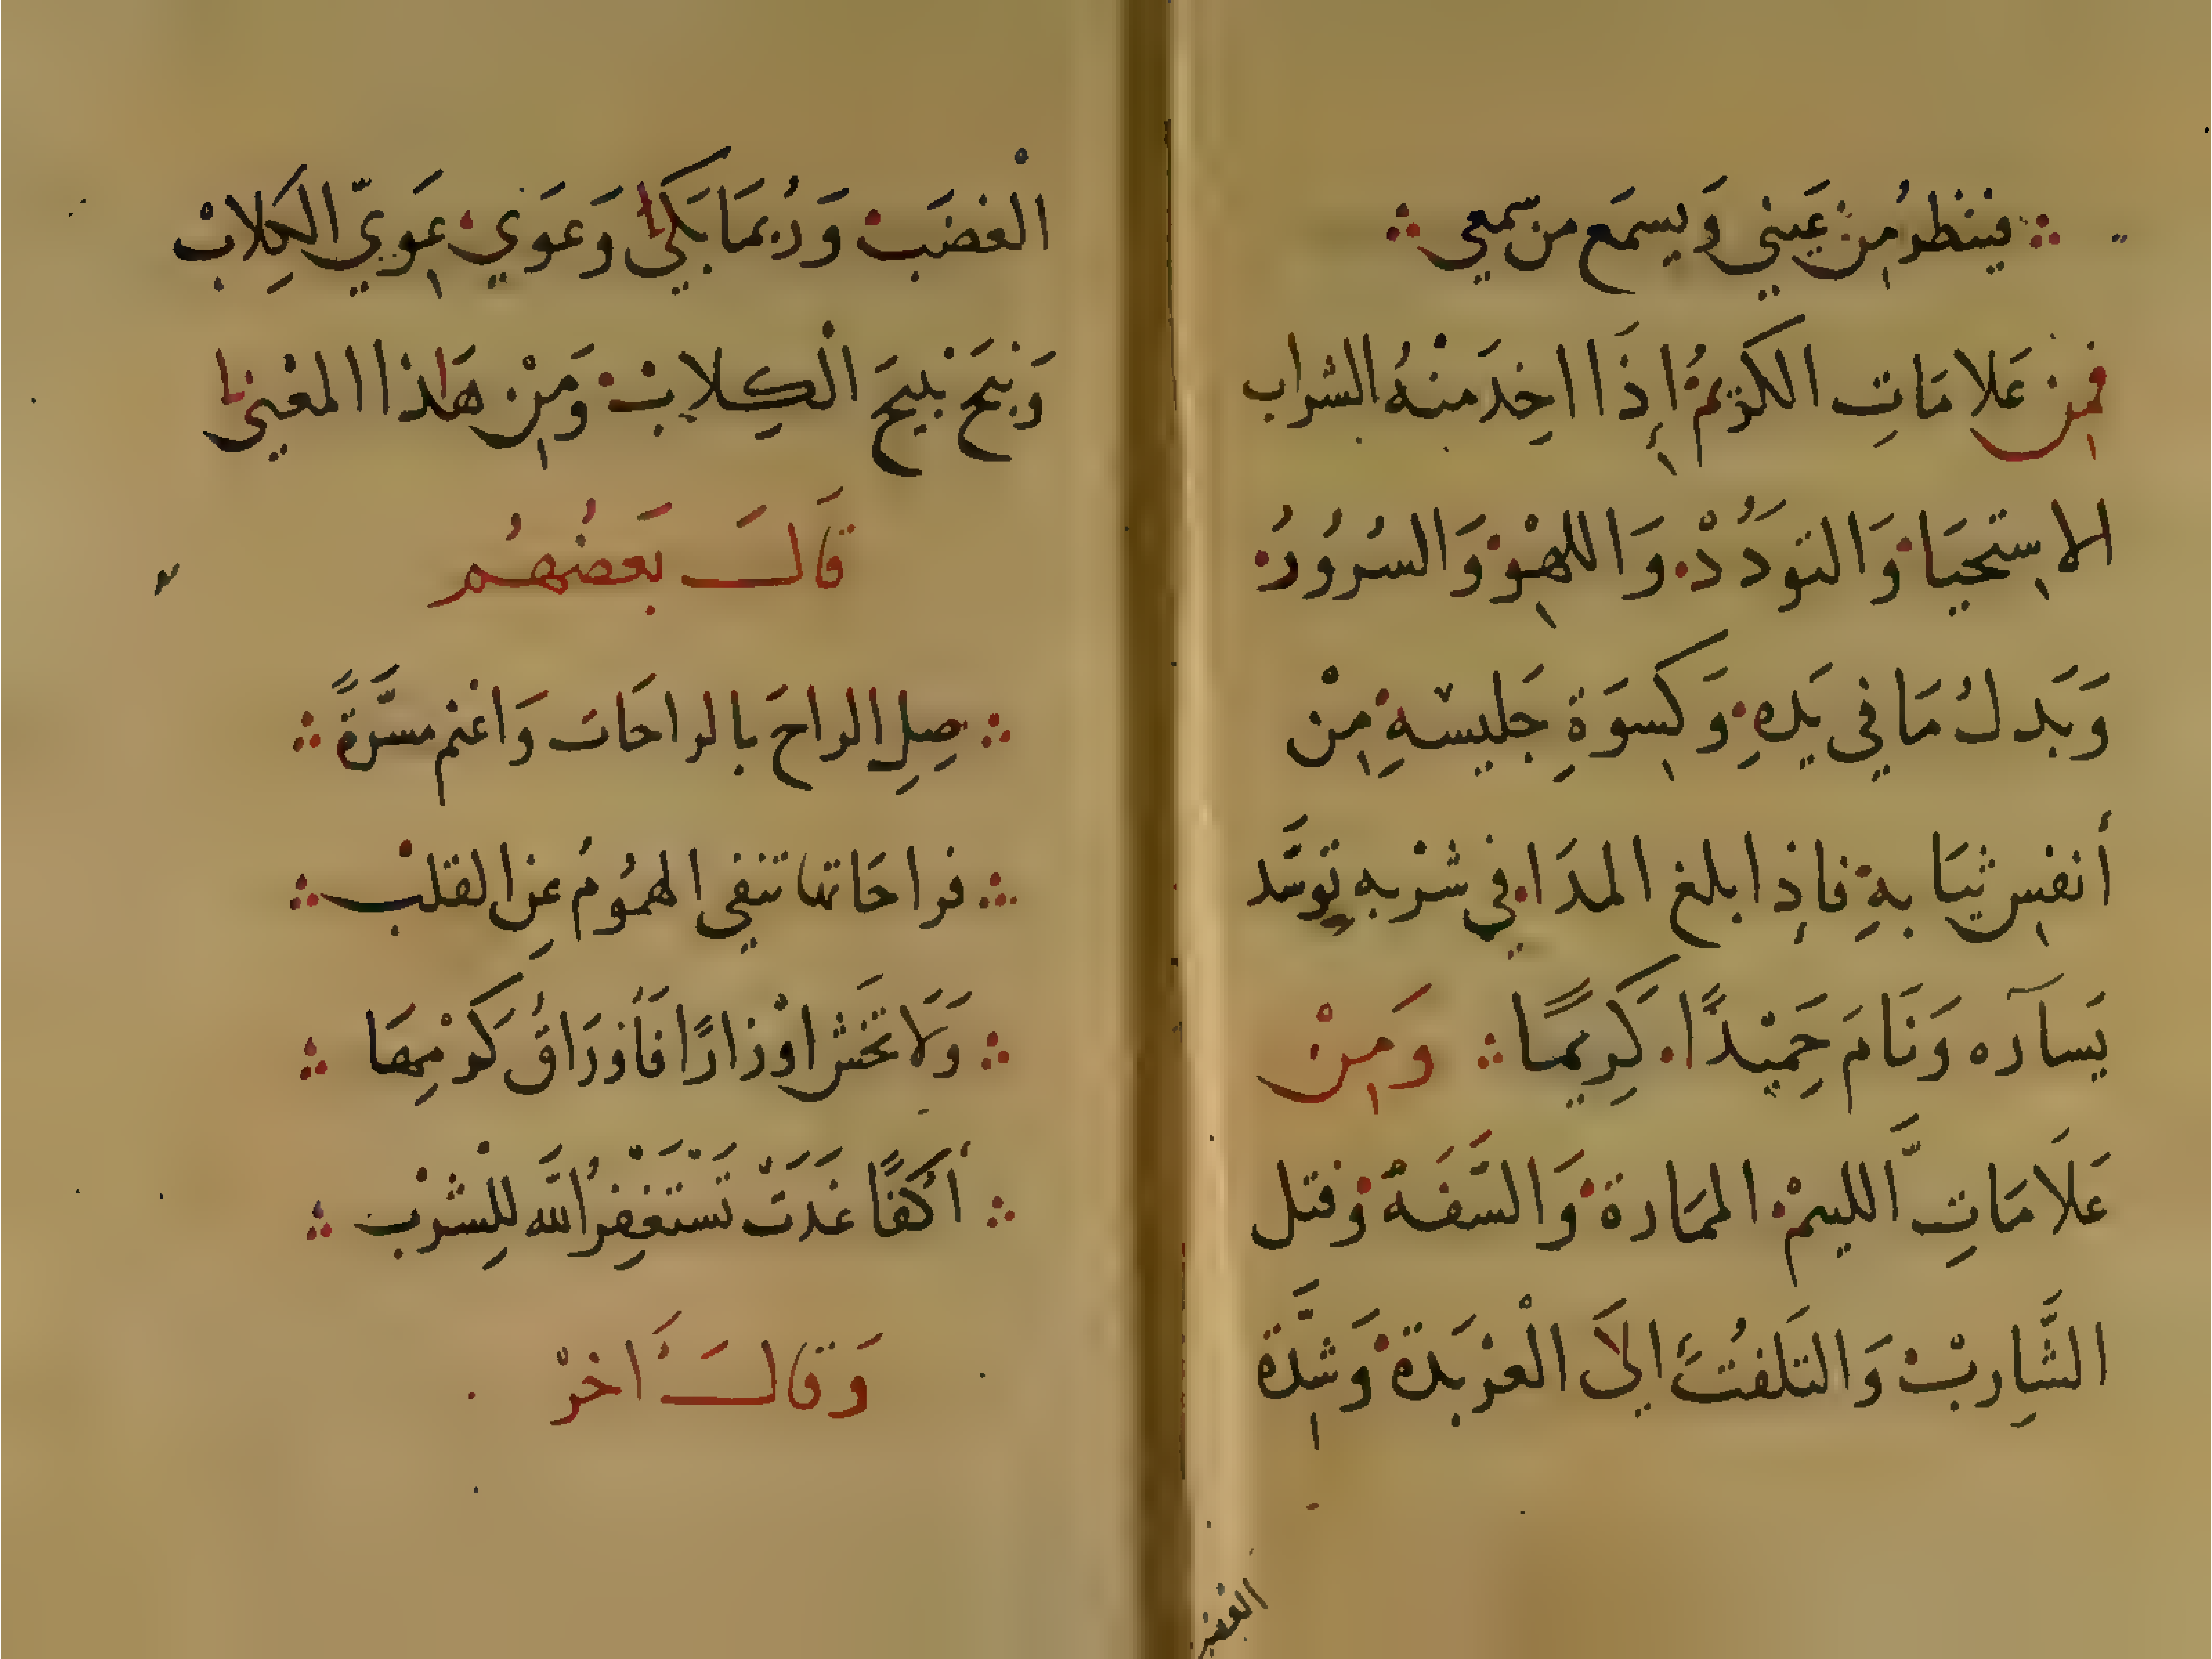 فينظرُ مِن عَيني وَيسمَع من سمعي
فمِن عَلامَاتِ الكَريمُ إِذَا اخِذَ منْهُ الشراب
الاستحيَا وَالتوَدُدْ وَاللهِوْ وَالسُرُورُ
وَبَدلُ مَا في يَدهِ وَكِسوَةِ جَليسهِ مِنْ
أنفسِ ثيَابهِ فاذِا بلغ المدَا في شرْبهِ توسَّد
يَسآره وَنَامَ حَمِيْدًا كَرِيمًا وَمِنْ
عَلَامَاتِ اللَّيمْ الممَارةْ وَالسَّفَهْ وَقتل
الشَّارِبْ وَالتَلَفتُ الىَ الْعرْبَدةْ وَشِدَّة
الْغضَبْ وَرُبمَا بَكىَ وَعوَي عِوَيّ الكِلابْ
وَنبَحَ نبْيحَ الْكِلابْ وَمِنْ هَاذا المعْنىَ
قَالَ بَعضُهُم
صِلِ الراحَ بالراحَات وَاغنم مسَّرةً
فراحَاتها تنفي الهمُومُ عنِ القلبْ
وَلَا تَخشَ اوْزارًا فَأورَاقُ كَرْمِهَا
أكفًا غَدَتْ تَسْتَغفِرُ اللَّه لِلْشرْب
وَقَالَ اَخرْ
الغضب